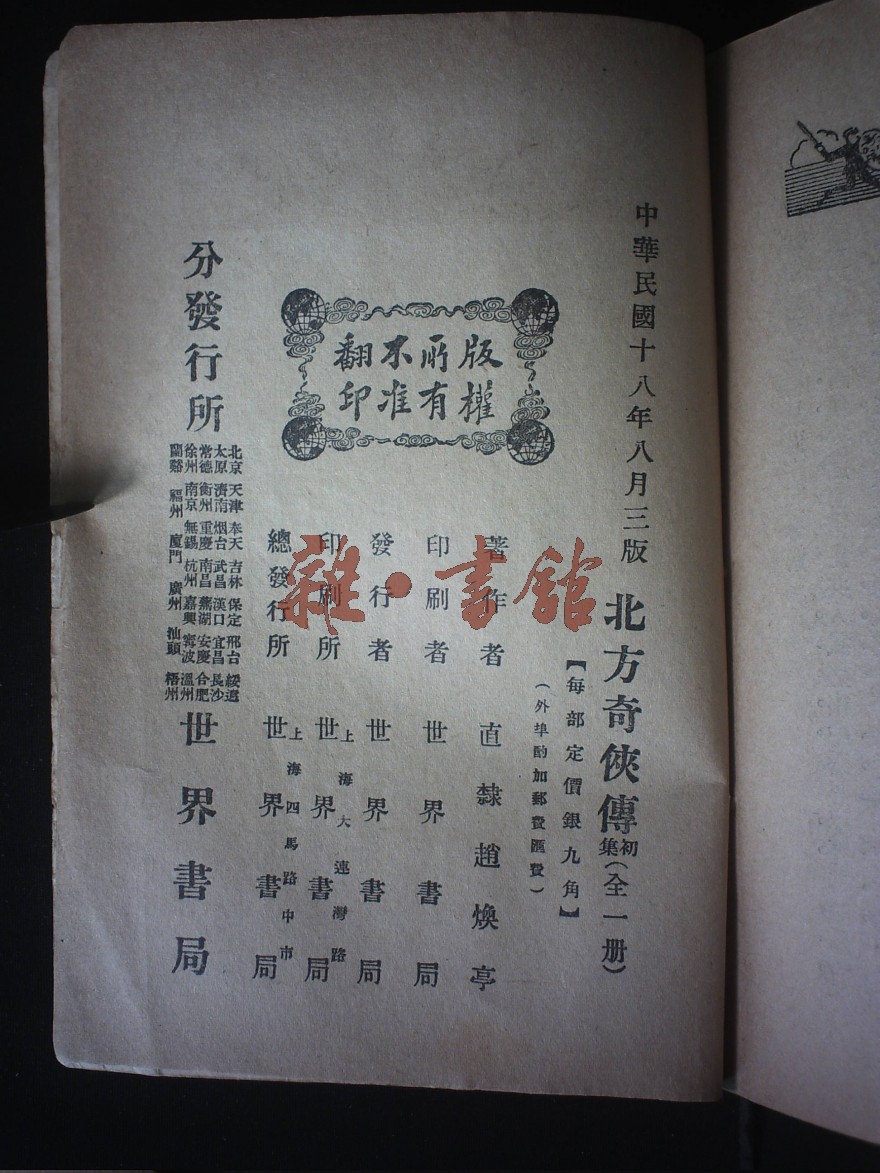 中華民國十八年八月三版
北方奇俠傳初集(全一册)
【每部定價銀九角】
(外埠酌加郵費匯費)
版權
所有
不准
翻印
著作者 直隸趙煥亭
印刷者 世界書局
發行者 世界書局
印刷所 上海大連灣路 世界書局
總發行所 上海四馬路中市 世界書局
分發行所
北京 天津 奉天 吉林 保定 邢台 綏遠
太原 濟南 烟台 武昌 漢口 宜昌 長沙
常德 衡州 重慶 南昌 蕪湖 安慶 合肥
徐州 南京 無錫 杭州 嘉興 寧波 溫州
蘭谿 福州 廈門 廣州 汕頭 梧州
世界書局
雜·書舘